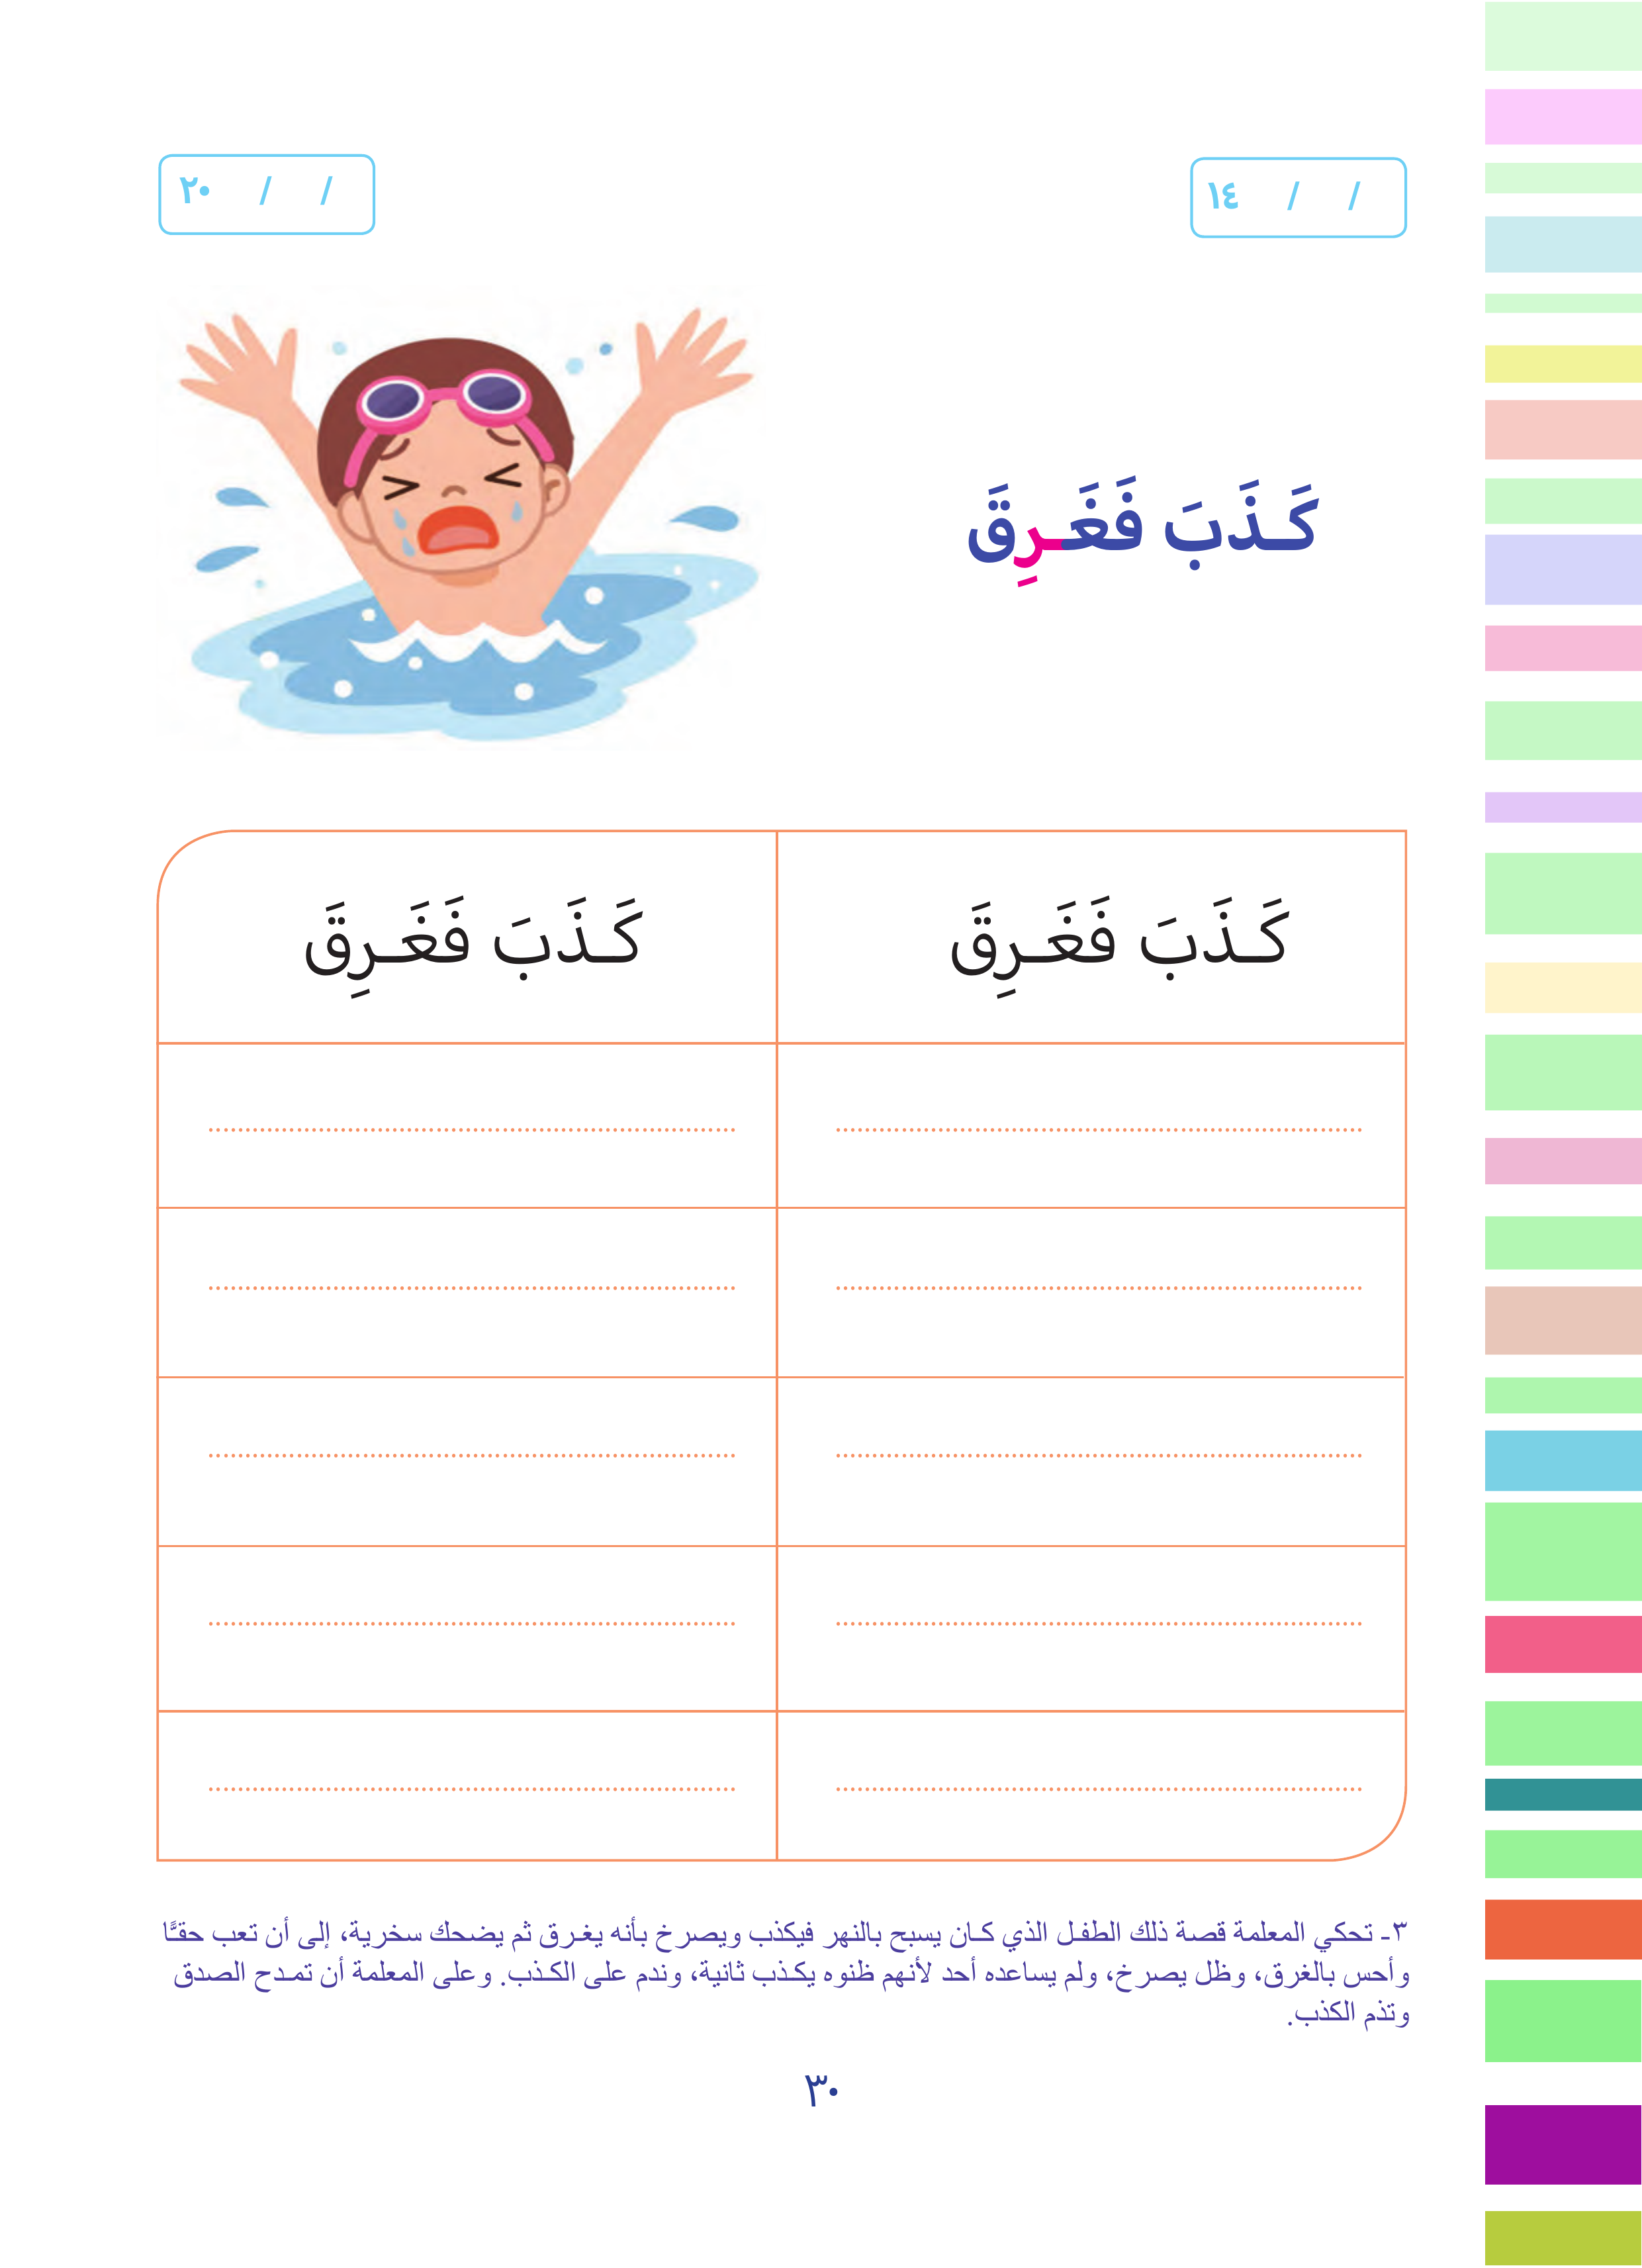 / / ١٤
/ / ٢٠
كَـذَبَ فَغَـرِقَ
كَـذَبَ فَغَـرِقَ
كَـذَبَ فَغَـرِقَ
٣- تحكي المعلمة قصة ذلك الطفـل الذي كـان يسبح بالنهر فيكذب ويصرخ بأنه يغـرق ثم يضحك سخرية، إلى أن تعب حقـًّا
وأحس بالغرق، وظل يصرخ، ولم يساعده أحد لأنهم ظنوه يكـذب ثانية، وندم على الكـذب. وعلى المعلمة أن تمـدح الصدق
وتذم الكذب.
٣٠